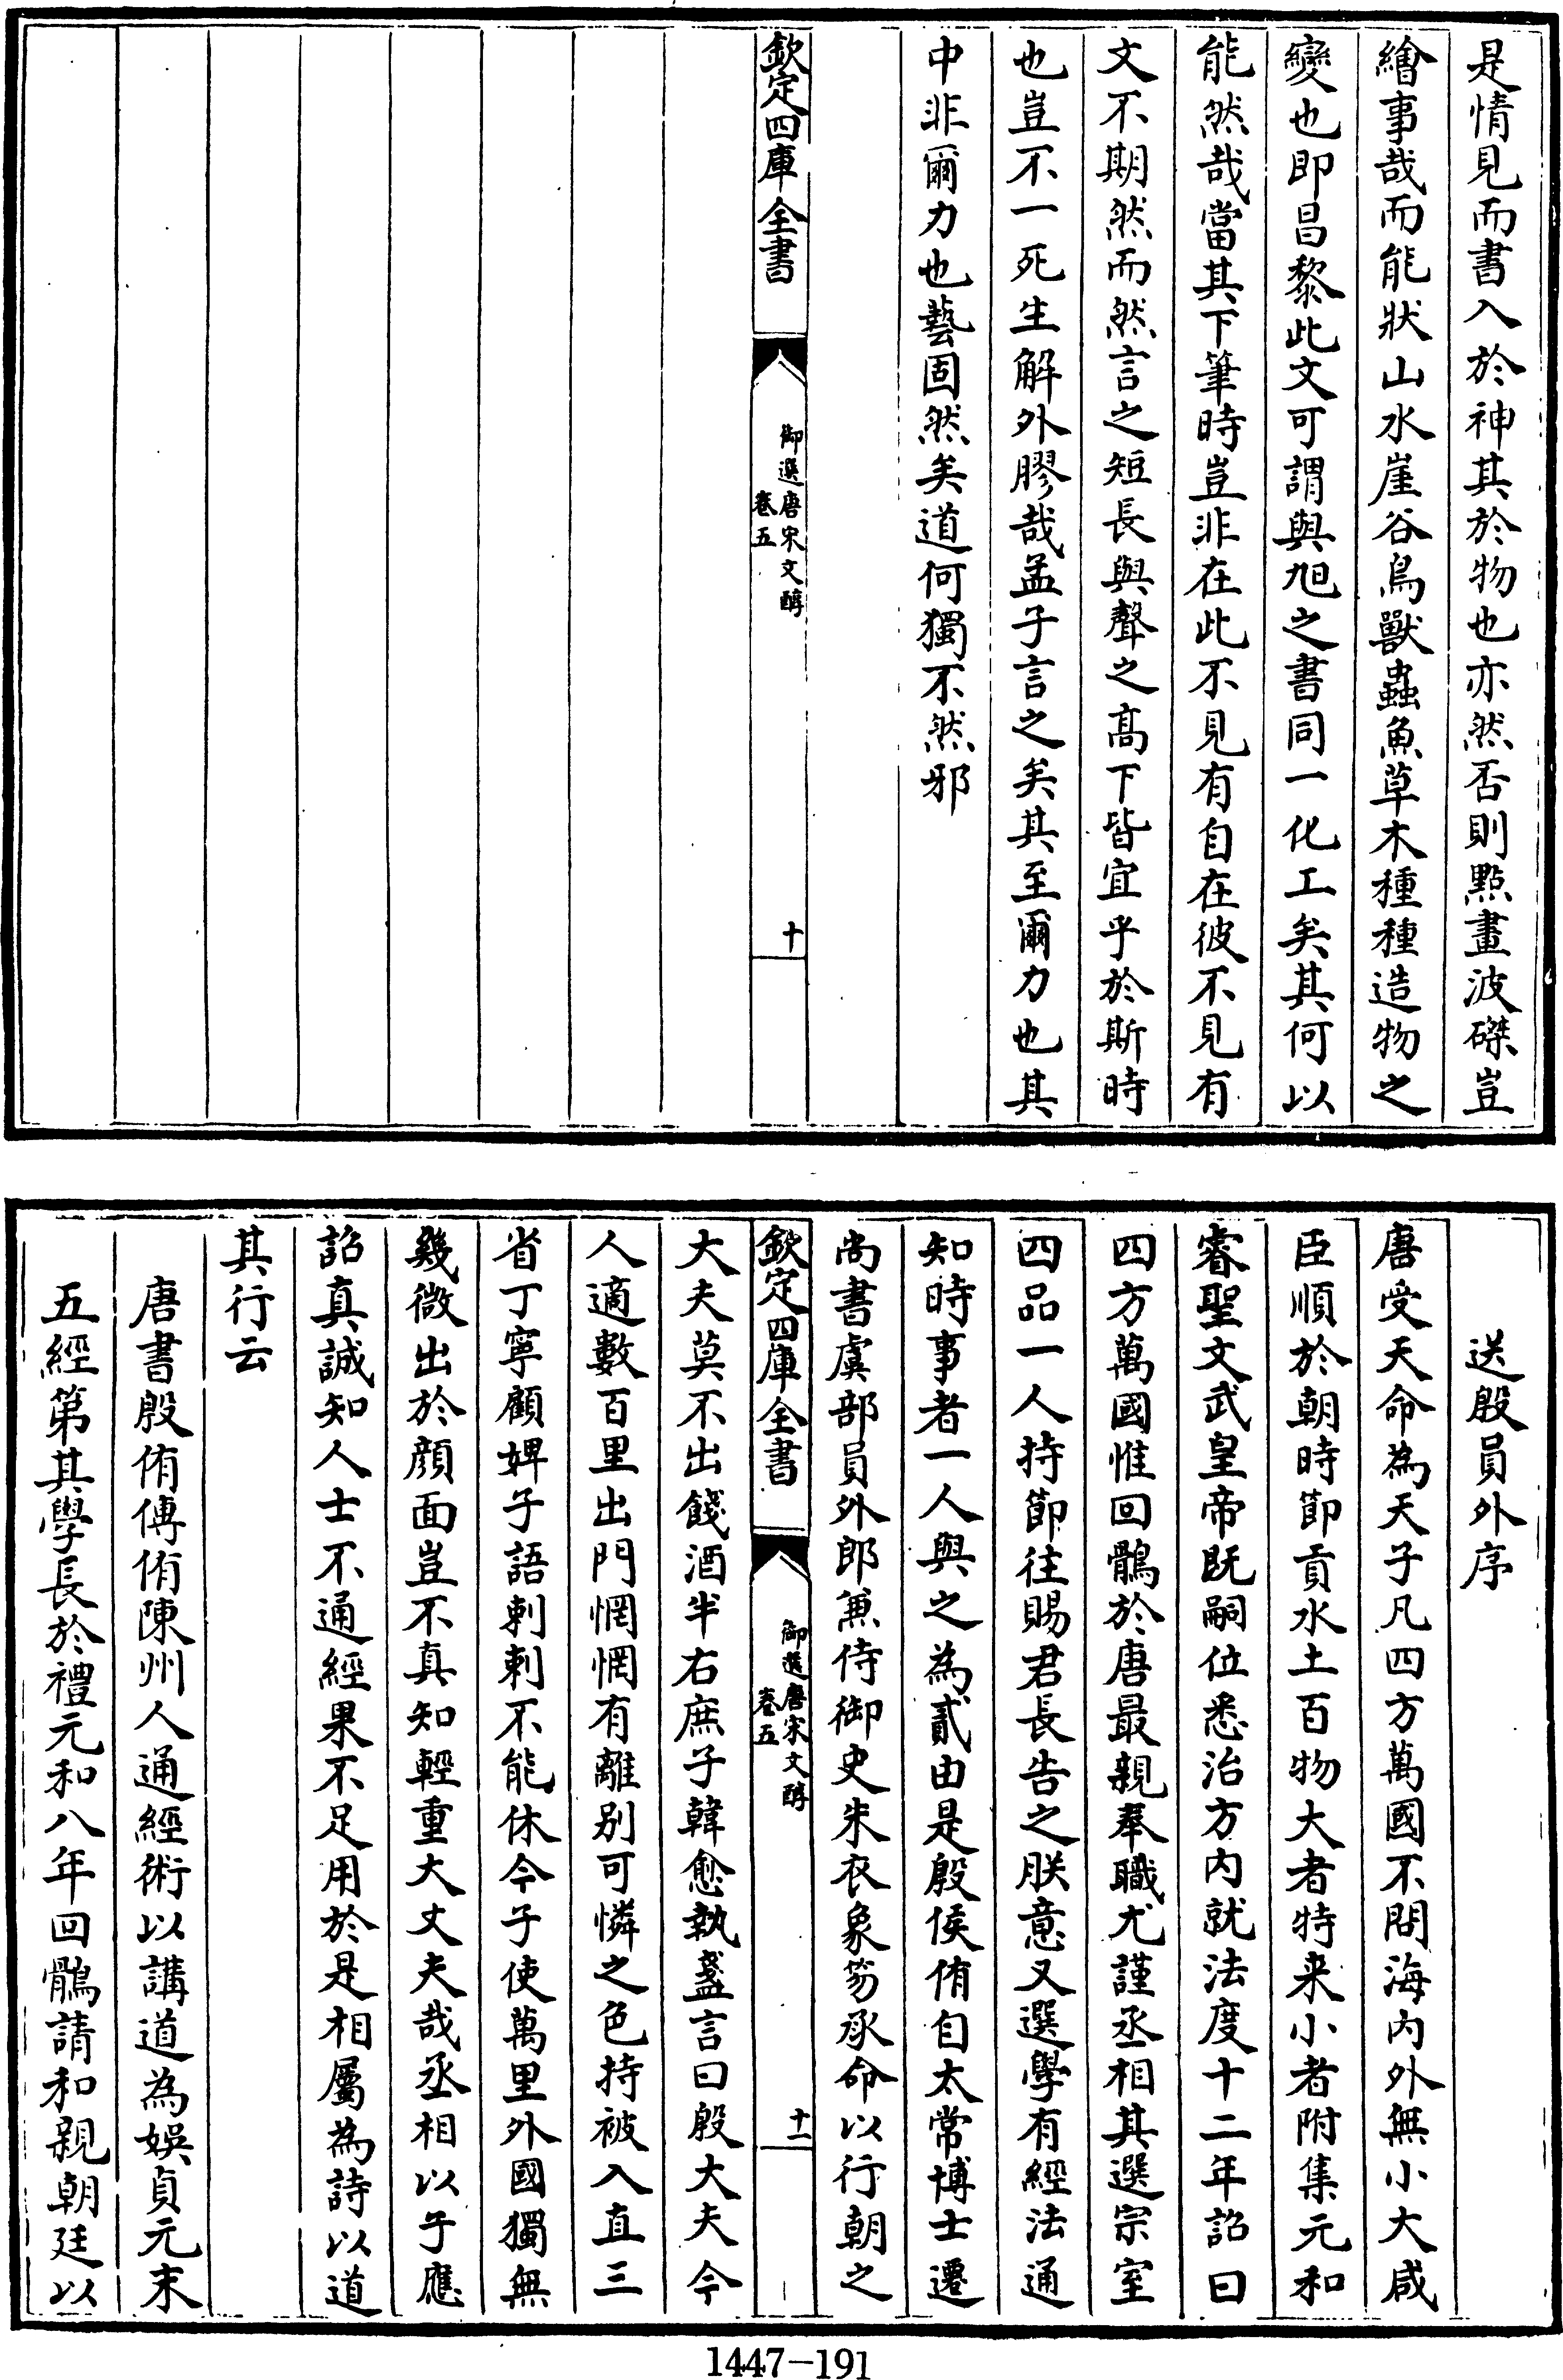 是情見而書入於神其於物也亦然否則點畫波磔豈
繪事哉而能狀山水崖谷鳥獸蟲魚草木種種造物之
變也即昌黎此文可謂與旭之書同一化工矣其何以
能然哉當其下筆時豈非在此不見有自在彼不見有
文不期然而然言之短長與聲之高下皆宜乎於斯時
也豈不一死生解外膠哉孟子言之矣其至爾力也其
中非爾力也藝固然矣道何獨不然邪
欽定四庫全書
御選唐宋文醇
卷五
十
送殷員外序
唐受天命為天子凡四方萬國不問海內外無小大咸
臣順於朝時節貢水土百物大者特来小者附集元和
睿聖文武皇帝既嗣位悉治方內就法度十二年詔曰
四方萬國惟回鶻於唐最親奉職尤謹丞相其選宗室
四品一人持節往賜君長告之朕意又選學有經法通
知時事者一人與之為貳由是殷侯侑自太常博士遷
尚書虞部員外郎兼侍御史朱衣象笏承命以行朝之
欽定四庫全書
御選唐宋文醇
卷五
十一
大夫莫不出餞酒半右庶子韓愈執盞言曰殷大夫今
人適數百里出門惘惘有離别可憐之色持被入直三
省丁寧顧婢子語刺刺不能休今子使萬里外國獨無
幾微出於顏面豈不真知輕重大丈夫哉丞相以子應
詔真誠知人士不通經果不足用於是相屬為詩以道
其行云
唐書殷侑傳侑陳州人通經術以講道為娛貞元末
五經第其學長於禮元和八年回鶻請和親朝廷以
1447-191